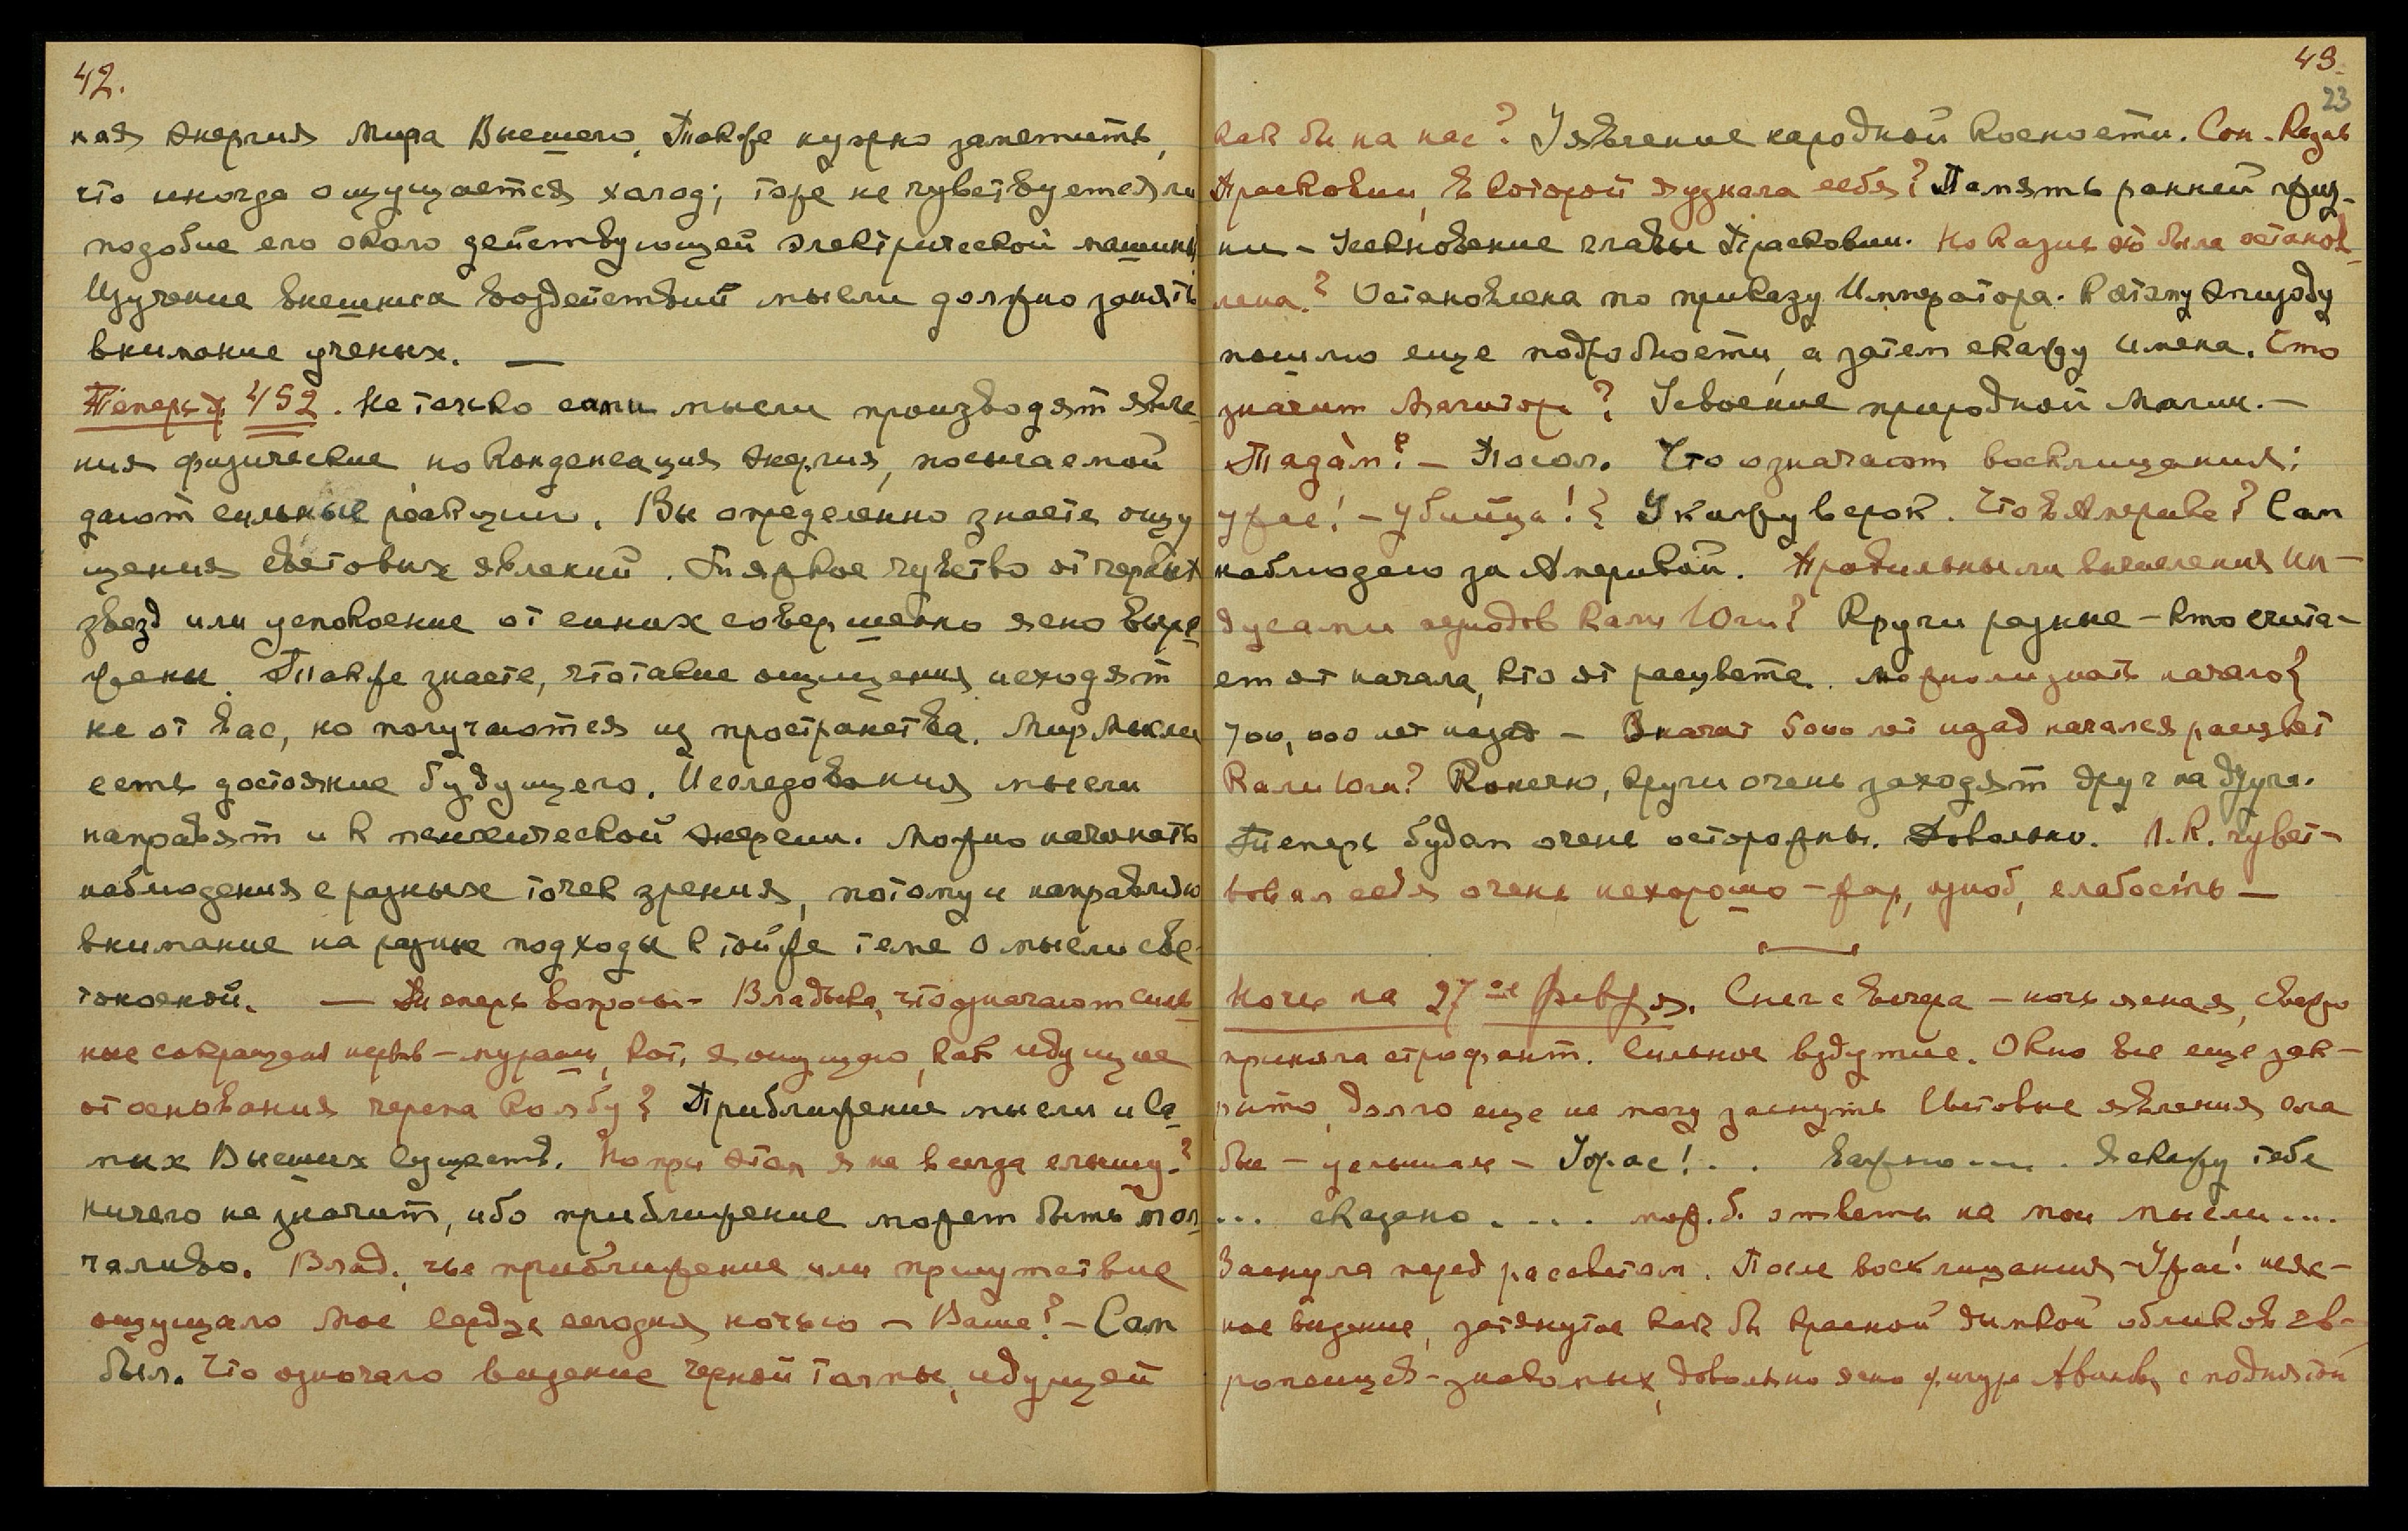 42.
ная энергия Мира Высшего. Также нужно заметить,
что иногда ощущается холод; тоже не чувствуется ли
подобие его около действующей электрической машины.
Изучение внешних воздействий мысли должно занять
внимание ученых. —
Теперь § 452. Не только сами мысли производят явле-
ния физические, но конденсация энергии, посылаемой
дают сильные реакции. Вы определенно знаете ощу
щения световых явлений. Тяжкое чувство от черных
звезд или успокоение от синих совершенно ясно выра
жены. Также знаете, что такие ощущения исходят
не от вас, но получаются из пространства. Мир Мысли
есть достояние будущего. Исследования мысли
направят и к психической энергии. Можно начинать
наблюдения с разных точек зрения, потому и направляю
внимание на разные подходы к той же теме о мысли све-
тоносной. — Теперь вопросы – Владыка, что означают силь
ные сокращения нервов – мурашки, кот. я ощущаю, как идущие
от основания черепа ко лбу? Приближение мысли и Са
мих Высших Существ. Но при этом я не всегда слышу?
Ничего не значит, ибо приближение может быть мол
чаливо. Влад., чье приближение или присутствие
ощущало мое сердце сегодня ночью – Ваше? – Сам
был. Что означало видение черной толпы, идущей
43.
23
как бы на нас? Уявление народной косности. Сон – Казнь
Прасковии, в которой я узнала себя? Память ранней жиз-
ни – Усекновение главы Прасковии. Но казнь эта была останов-
лена? Остановлена по приказу Императора. К этому эпизоду
пошлю еще подробности, а затем скажу имена. Что
значит Магитор? Усвоение природной Магии. –
Тадам? – Посол. Что означают восклицания:
ужас! – убийца!? Унижу верок. Что в Америке? Сам
наблюдаю за Америкой. Правильны ли вычисления Ин-
дусами периодов Кали Юги? Круги разные – кто счита-
ет от начала, кто от расцвета. Можно ли знать начало?
700,000 лет назад – Значит 5000 лет назад начался расцвет
Кали Юги? Конечно, круги очень заходят друг на друга.
Теперь будем очень осторожны. Довольно. Н.К. чувст-
вовал себя очень нехорошо – жар, озноб, слабость —
Ночь на 27ое февр‌ля. Снег с вечера – ночь ясная, свежо
приняла строфант. Сильное вздутие. Окно все еще зак-
рыто, долго еще не могу заснуть Световые явления сла
бы – услышала – Ужас! . . Важно .... Я скажу тебе
... сказано .... мож. б. ответы на мои мысли ...
Заснула перед рассветом. После восклицания – Ужас! неяс-
ное видение, затянутое как бы красной дымкой обликов ев-
ропейцев – знакомых, довольно ясно фигура с поднятой